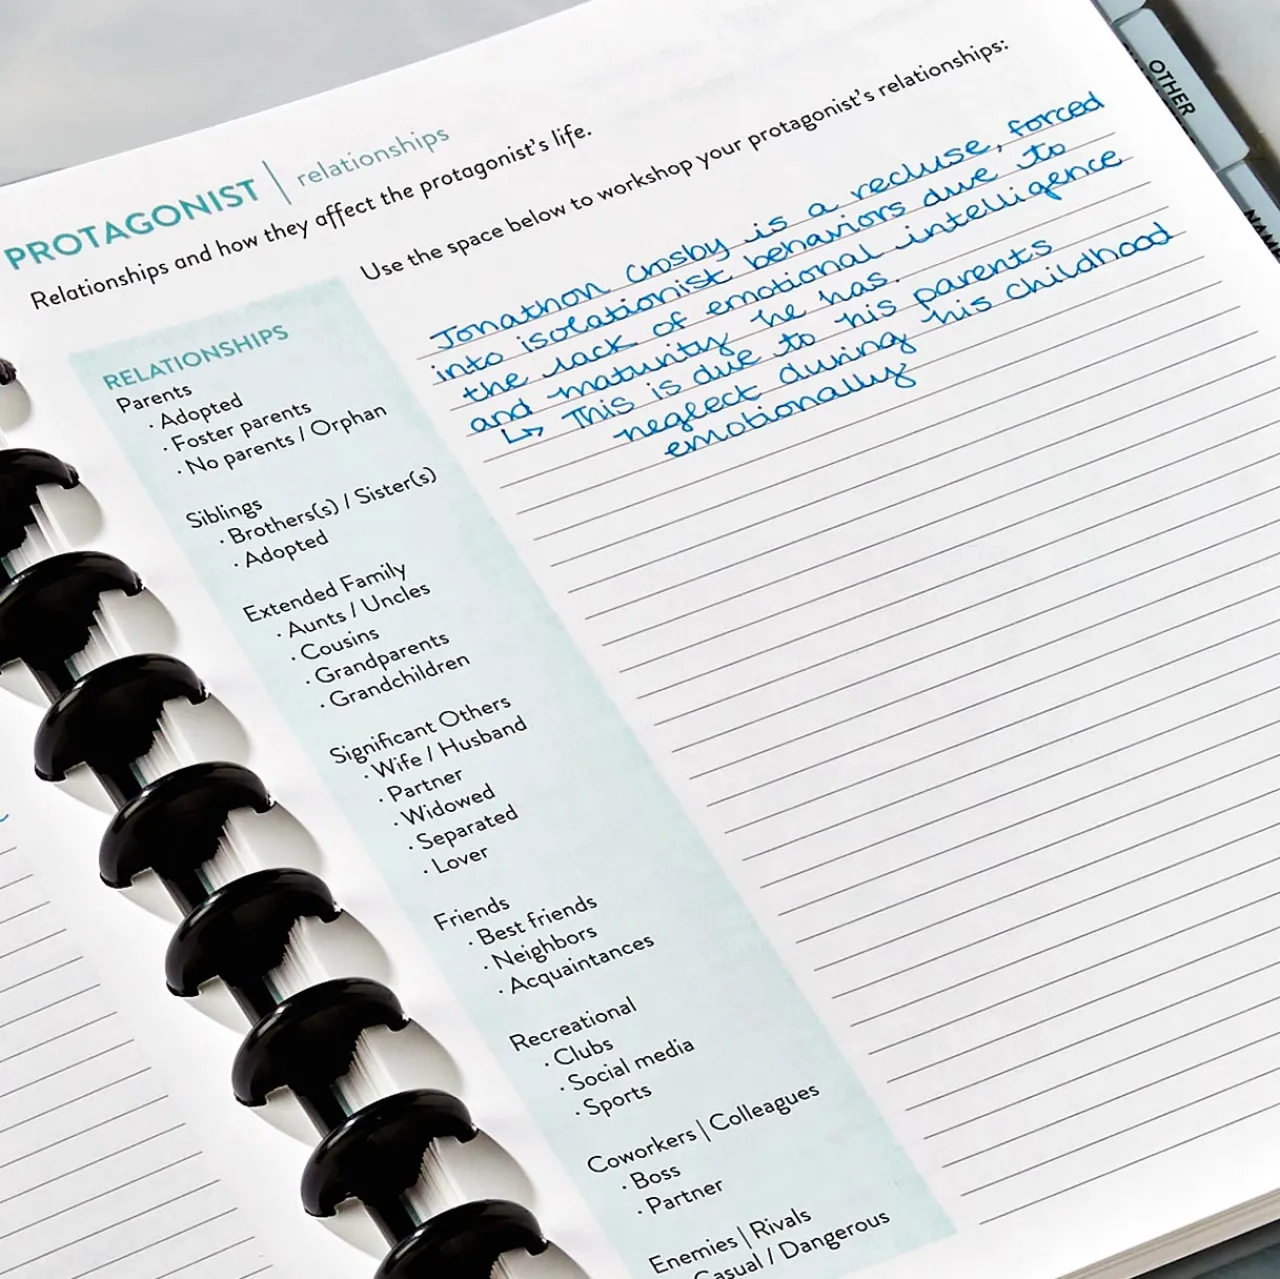 PROTAGONIST | relationships
Relationships and how they affect the protagonist's life.
Use the space below to workshop your protagonist's relationships:
Jonathon Crosby is a recluse, forced
into isolationist behaviors due to
the lack of emotional intelligence
and maturity he has.
↳ This is due to his parents
neglect during his childhood
emotionally
RELATIONSHIPS
Parents
· Adopted
· Foster parents
· No parents / Orphan
Siblings
· Brothers(s) / Sister(s)
· Adopted
Extended Family
· Aunts / Uncles
· Cousins
· Grandparents
· Grandchildren
Significant Others
· Wife / Husband
· Partner
· Widowed
· Separated
· Lover
Friends
· Best friends
· Neighbors
· Acquaintances
Recreational
· Clubs
· Social media
· Sports
Coworkers | Colleagues
· Boss
· Partner
Enemies | Rivals
Casual / Dangerous
OTHER